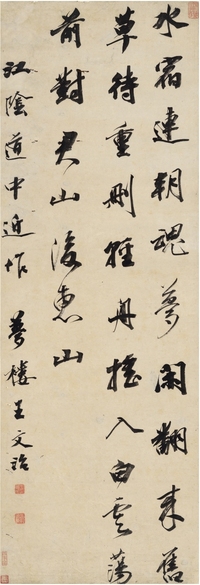 水宿連朝魂夢閑翻來舊
草待重刪輕舟搖入白雲蕩
前對君山後惠山
江陰道中近作 夢樓王文治